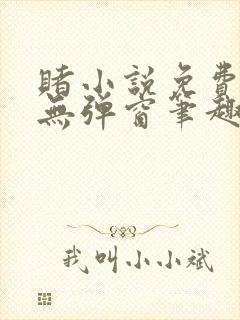 賭小說免費
無彈窗筆趣
我叫小小斌